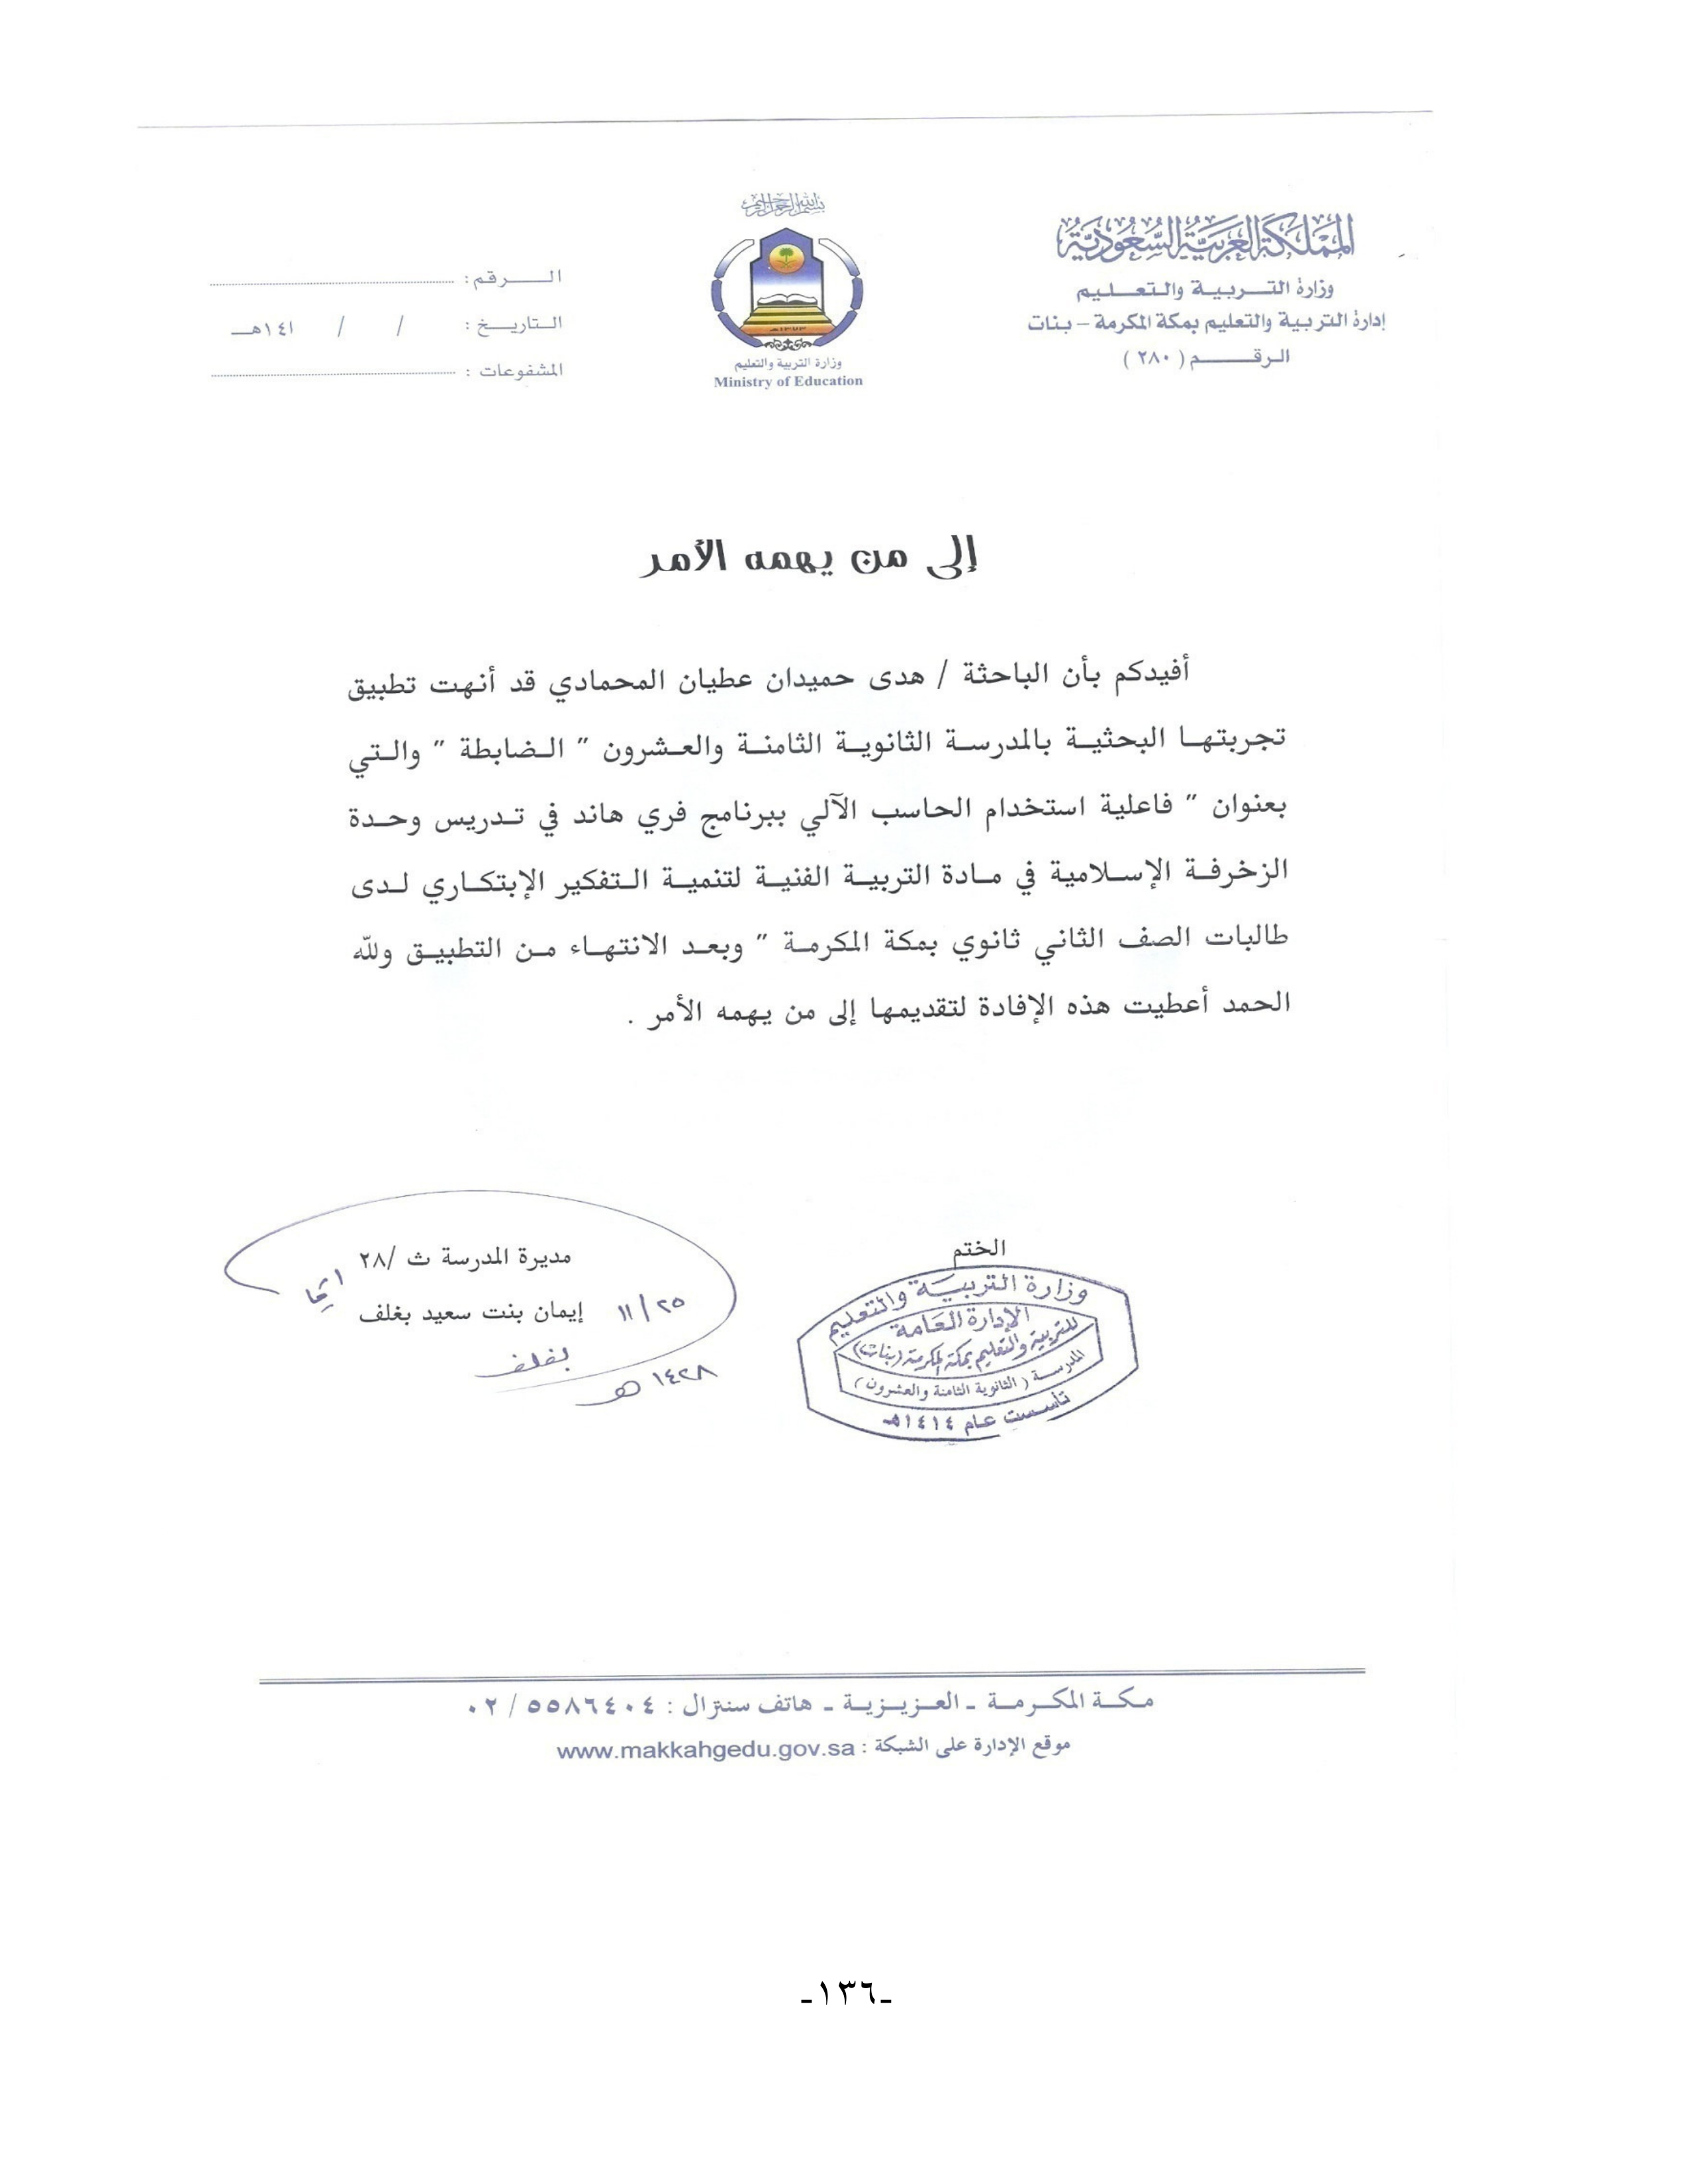 المملكة العربية السعودية
وزارة التربية والتعليم
إدارة التربية والتعليم بمكة المكرمة – بنات
الرقم ( ٢٨٠ )
بسم الله الرحمن الرحيم
١٣٧٣هـ
وزارة التربية والتعليم
Ministry of Education
الرقم :
التاريخ : / / ١٤١هـ
المشفوعات :
إلى من يهمه الأمر
أفيدكم بأن الباحثة / هدى حميدان عطيان المحمادي قد أنهت تطبيق
تجربتها البحثية بالمدرسة الثانوية الثامنة والعشرون " الضابطة " والتي
بعنوان " فاعلية استخدام الحاسب الآلي ببرنامج فري هاند في تدريس وحدة
الزخرفة الإسلامية في مادة التربية الفنية لتنمية التفكير الإبتكاري لدى
طالبات الصف الثاني ثانوي بمكة المكرمة " وبعد الانتهاء من التطبيق ولله
الحمد أعطيت هذه الإفادة لتقديمها إلى من يهمه الأمر .
الختم
وزارة التربية والتعليم
الإدارة العامة
للتربية والتعليم بمكة المكرمة (بنات)
المدرسة ( الثانوية الثامنة والعشرون )
تأسست عام ١٤١٤هـ
مديرة المدرسة ث /٢٨
إيمان بنت سعيد بغلف
٢٥ / ١١
بغلف
١٤٢٨ هـ
مكة المكرمة ـ العزيزية ـ هاتف سنترال : ٥٥٨٦٤٠٤ / ٠٢
موقع الإدارة على الشبكة : www.makkahgedu.gov.sa
-١٣٦-